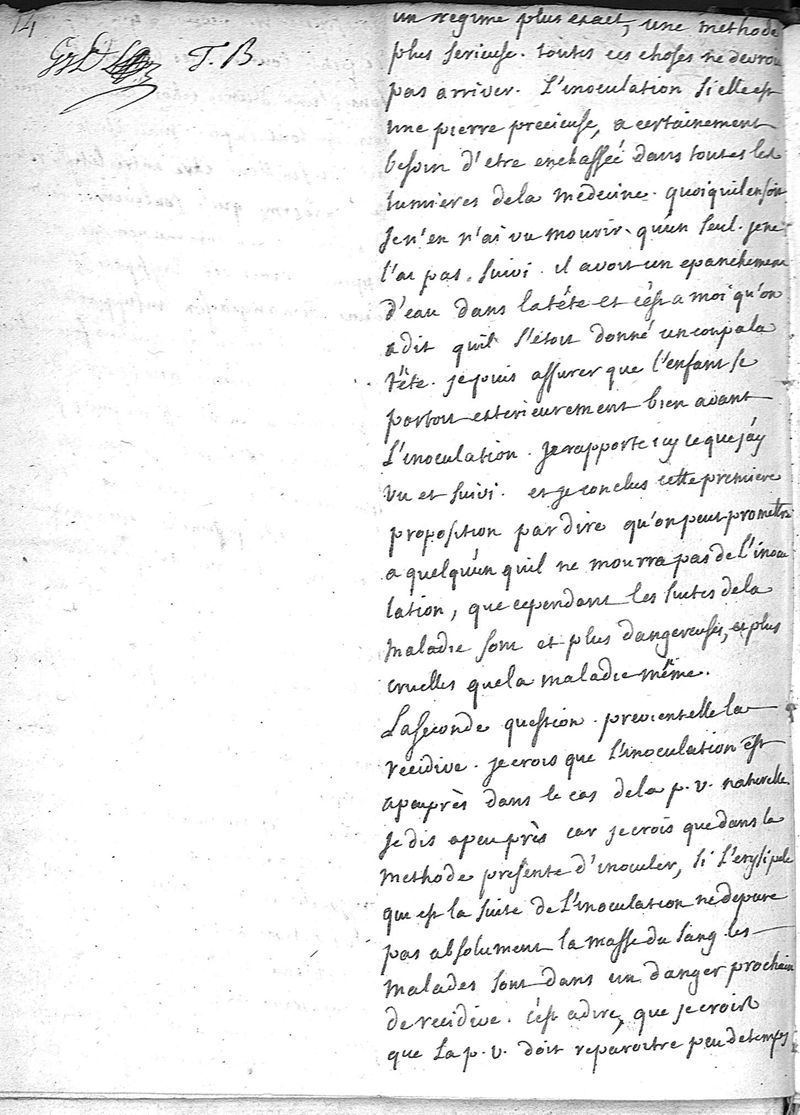 14
T. B.
un regime plus exact, une methode
plus serieuse. toutes ces choses ne devroi
pas arriver. L'inoculation si elle est
une pierre precieuse, a certainement
besoin d'etre enchassée dans toutes les
lumieres dela medecine. quoiquil en soit
Je n'en n'ai vu mourir qu'un seul. je ne
l'ai pas suivi. il avoit un epanchement
d'eau dans la tête et c'est a moi qu'on
a dit quil s'etoit donné un coup a la
tête. je puis assurer que l'enfant se
portoit exterieurement bien avant
L'inoculation. Je rapporte icy ce que j'ay
vu et suivi. et je conclus cette premiere
proposition par dire qu'on peut promettre
a quelqu'un quil ne mourra pas de l'inocu
lation, que cependant les suites dela
maladie sont et plus dangereuses, et plus
cruelles que la maladie même.
La seconde question. previent elle la
recidive. je crois que L'inoculation est
apeuprès dans le cas dela p. v. naturelle.
Je dis apeuprès car je crois que dans la
methode presente d'inoculer, si L'erysipele
qui est la suite de L'inoculation ne depure
pas absolument la masse du sang les
malades sont dans un danger prochain
de recidive. c'est adire, que je crois
que La p. v. doit reparoitre peu de temps